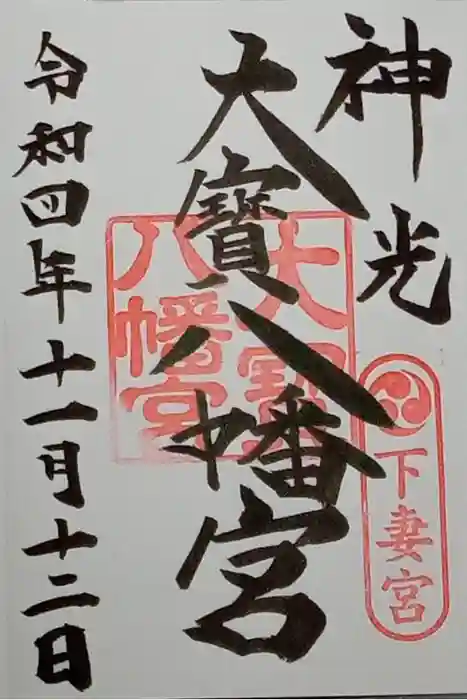 神光
下妻宮
大寳八幡宮
大寳八幡宮
令和四年十一月十二日